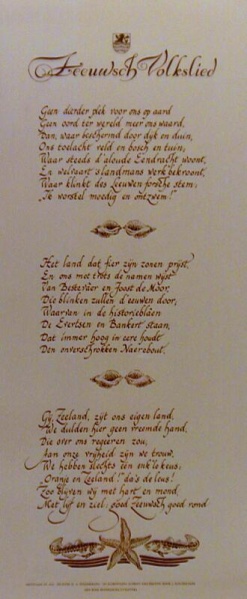 Zeeuwsch Volkslied
Geen dierder plek voor ons op aard
Geen oord ter wereld meer ons waard,
Dan, waar beschermd door dijk en duin,
Ons toelacht veld en bosch en tuin;
Waar steeds d'aloude Eendracht woont,
En welvaart 's landmans werk bekroont,
Waar klinkt des Leeuwen forsche stem:
"Ik worstel moedig en ontzwem!"
Het land dat fier zijn zonen prijst,
En ons met trots de namen wijst
Van Bestevâer en Joost de Moor,
Die blinken zullen d'eeuwen door;
Waarvan in de historieblâen
De Evertsen en Bankert staan,
Dat immer hoog in eere houdt
Den onverschrokken Naerebout.
Gij, Zeeland, zijt ons eigen land,
We dulden hier geen vreemde hand,
Die over ons regeeren zou,
Aan onze vrijheid zijn we trouw.
We hebben slechts één enk'le keus:
"Oranje en Zeeland! da's de leus!"
Zoo blijven wij met hart en mond,
Met lijf en ziel: goed Zeeuwsch goed rond